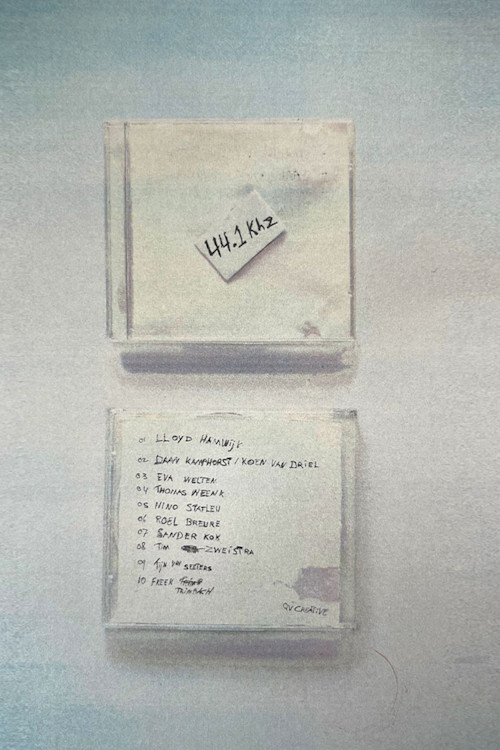 44.1 Khz
01 LLOYD HAMWIJK
02 DAAN KAMPHORST / KOEN VAN DRIEL
03 EVA WELTEN
04 THOMAS WEENK
05 NINO STATLEU
06 ROEL BREURE
07 SANDER KOX
08 TIM ZWEISTRA
09 VAN SEETERS
10 FREEK
TRIMBACH
CREATIVE